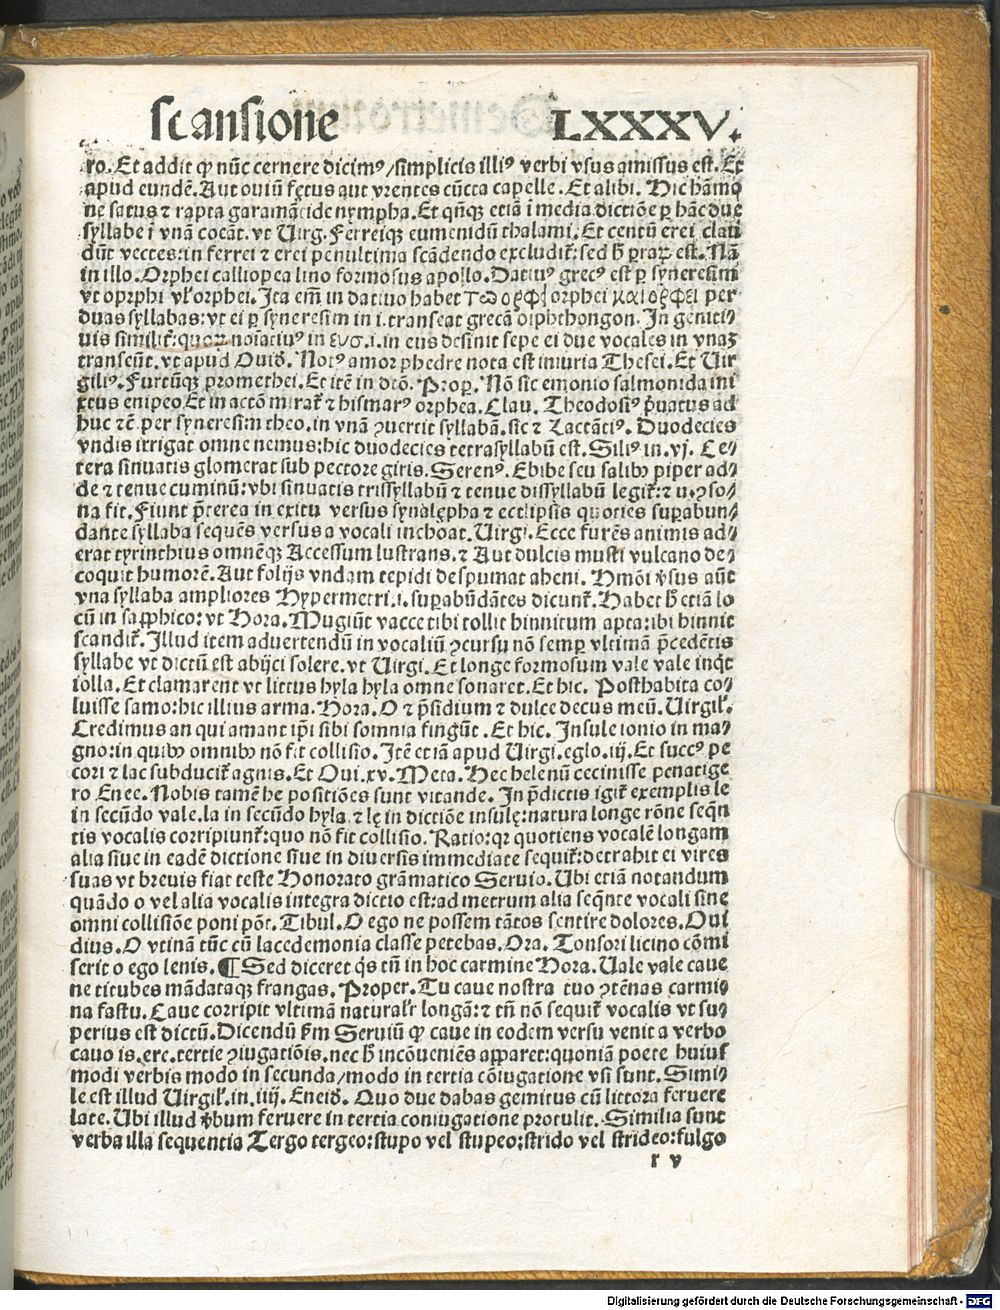 scansione LXXXV.
ro. Et addit ꝙ nūc cernere dicimꝰ/simplicis illiꝰ verbi vsus amissus est. Et
apud eundē. Aut ouiū fętus aut vrentes cūcta capelle. Et alibi. Hic hāmo
ne satus ⁊ rapta garamātide nympha. Et qñqꝫ etiā ī media dictiōe ꝑ hāc due
syllabe ī vnā coeāt. vt Virg. Ferreiqꝫ eumenidū thalami. Et centū erei clau
dūt vectes: in ferrei ⁊ erei penultima scādendo excludit᷑: sed h̄ ꝑ est. Nā
in illo. Orphei calliopea lino formosus apollo. Datiuꝰ grecꝰ est ꝑ syneresim
vt orphi vl̓ orphei. Ita em̄ in datiuo habet τω ορφι orphei και ορφει per
duas syllabas: vt ei ꝑ syneresim in i. transeat grecā diphthongon. In geniti⸗
uis similit᷑: quoꝝ noiatiuꝰ in ευσ .i. in eus desinit sepe ei due vocales in vnaꝫ
transeūt. vt apud Ouid̓. Notꝰ amor phedre nota est iniuria Thesei. Et Uir
giliꝰ. Furtūqꝫ promethei. Et itē in dtō. Prop̱. Nō sic emonio salmonida mi
xtus enipeo Et in acctō mirat᷑ ⁊ hismarꝰ orphea. Clau. Theodosiꝰ p̄uatus ad
huc ⁊ē per syneresim theo. in vnā ꝯuertit syllabā. sic ⁊ Lactātiꝰ. Duodecies
vndis irrigat omne nemus: hic duodecies tetrasyllabū est. Siliꝰ in .vj. Ce⸗
tera sinuatis glomerat sub pectore giris. Serenꝰ. Ebibe seu salibꝰ piper ad⸗
de ⁊ tenue cuminū: vbi sinuatis trissyllabū ⁊ tenue dissyllabū legit᷑: ⁊ u ꝯso⸗
na fit. Fiunt p̄terea in exitu versus synalępha ⁊ ectlipsis quoties suꝑabun⸗
dante syllaba sequēs versus a vocali inchoat. Uirgi. Ecce furēs animis ad⸗
erat tyrinthius omnēqꝫ Accessum lustrans. ⁊ Aut dulcis musti vulcano de⸗
coquit humorē. Aut folijs vndam tepidi despumat aheni. Hmōi v̓sus aūt
vna syllaba ampliores Hypermetri .i. suꝑabūdātes dicunt᷑. Habet h̄ etiā lo
cū in sapphico: vt Hora. Mugiūt vacce tibi tollit hinnitum apta: ibi hinnit
scandit᷑. Illud item aduertendū in vocaliū ꝯcursu nō semꝑ vltimā p̄cedētis
syllabe vt dictū est abijci solere. vt Uirgi. Et longe formosum vale vale inq̄t
iolla. Et clamarent vt littus hyla hyla omne sonaret. Et hic. Posthabita co⸗
luisse samo: hic illius arma. Hora. O ⁊ p̄sidium ⁊ dulce decus meū. Uirgil̓.
Credimus an qui amant ip̄i sibi somnia fingūt. Et hic. Insule ionio in ma⸗
gno: in quibꝰ omnibꝰ nō fit collisio. Itē etiā apud Uirgi. eglo. iij. Et succꝰ pe
cori ⁊ lac subducit᷑ agnis. Et Oui. xv. Meta. Hec helenū cecinisse penatige
ro Enee. Nobis tamē he positiōes sunt vitande. In p̄dictis igit᷑ exemplis le
in secūdo vale. la in secūdo hyla. ⁊ lę in dictiōe insulę: natura longe rōne seqn̄
tis vocalis corripiunt᷑: quo nō fit collisio. Ratio: qꝛ quotiens vocalē longam
alia siue in eadē dictione siue in diuersis immediate sequit᷑: detrahit ei vires
suas vt breuis fiat teste Honorato grāmatico Seruio. Ubi etiā notandum
quādo o vel alia vocalis integra dictio est: ad metrum alia seqn̄te vocali sine
omni collisiōe poni pōt. Tibul. O ego ne possem tātos sentire dolores. Oui
dius. O vtinā tūc cū lacedemonia classe petebas. Ora. Tonsori licino cōmi
serit o ego lenis. ¶ Sed diceret q̇s tn̄ in hoc carmine Hora. Uale vale caue
ne titubes mādataqꝫ frangas. Proper. Tu caue nostra tuo ꝯtēnas carmi⸗
na fastu. Caue corripit vltimā natural̓r longā: ⁊ tn̄ nō sequit᷑ vocalis vt su⸗
perius est dictū. Dicendū ẜm Seruiū ꝙ caue in eodem versu venit a verbo
cauo is. ere. tertie ꝯiugatiōis. nec h̄ incōueniēs apparet: quoniā poete huius
modi verbis modo in secunda/modo in tertia cōiugatione vsi sunt. Simi⸗
le est illud Uirgil̓. in. iiij. Eneid̓. Quo due dabas gemitus cū littora feruere
late. Ubi illud v̓bum feruere in tertia coniugatione protulit. Similia sunt
verba illa sequentia Tergo tergeo: stupo vel stupeo: strido vel strideo: fulgo
r v
Digitalisierung gefördert durch die Deutsche Forschungsgemeinschaft - DFG